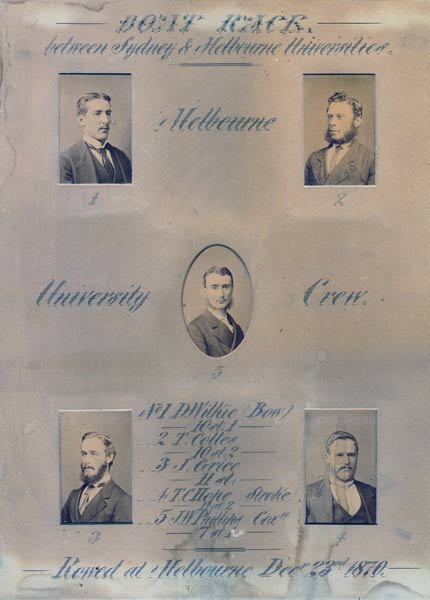 BOAT RACE.
between Sydney & Melbourne Universities.
Melbourne
1
2
University
Crew.
5
No 1 D. Wilkie (Bow)
10 st. 1
2 T. Colles
10 st. 2
3
11 st.
4 T.C. Hope Stroke
2
5 J.W. Phillips Coxn
7 st.
3
4
Rowed at Melbourne Decr 23rd 1870.